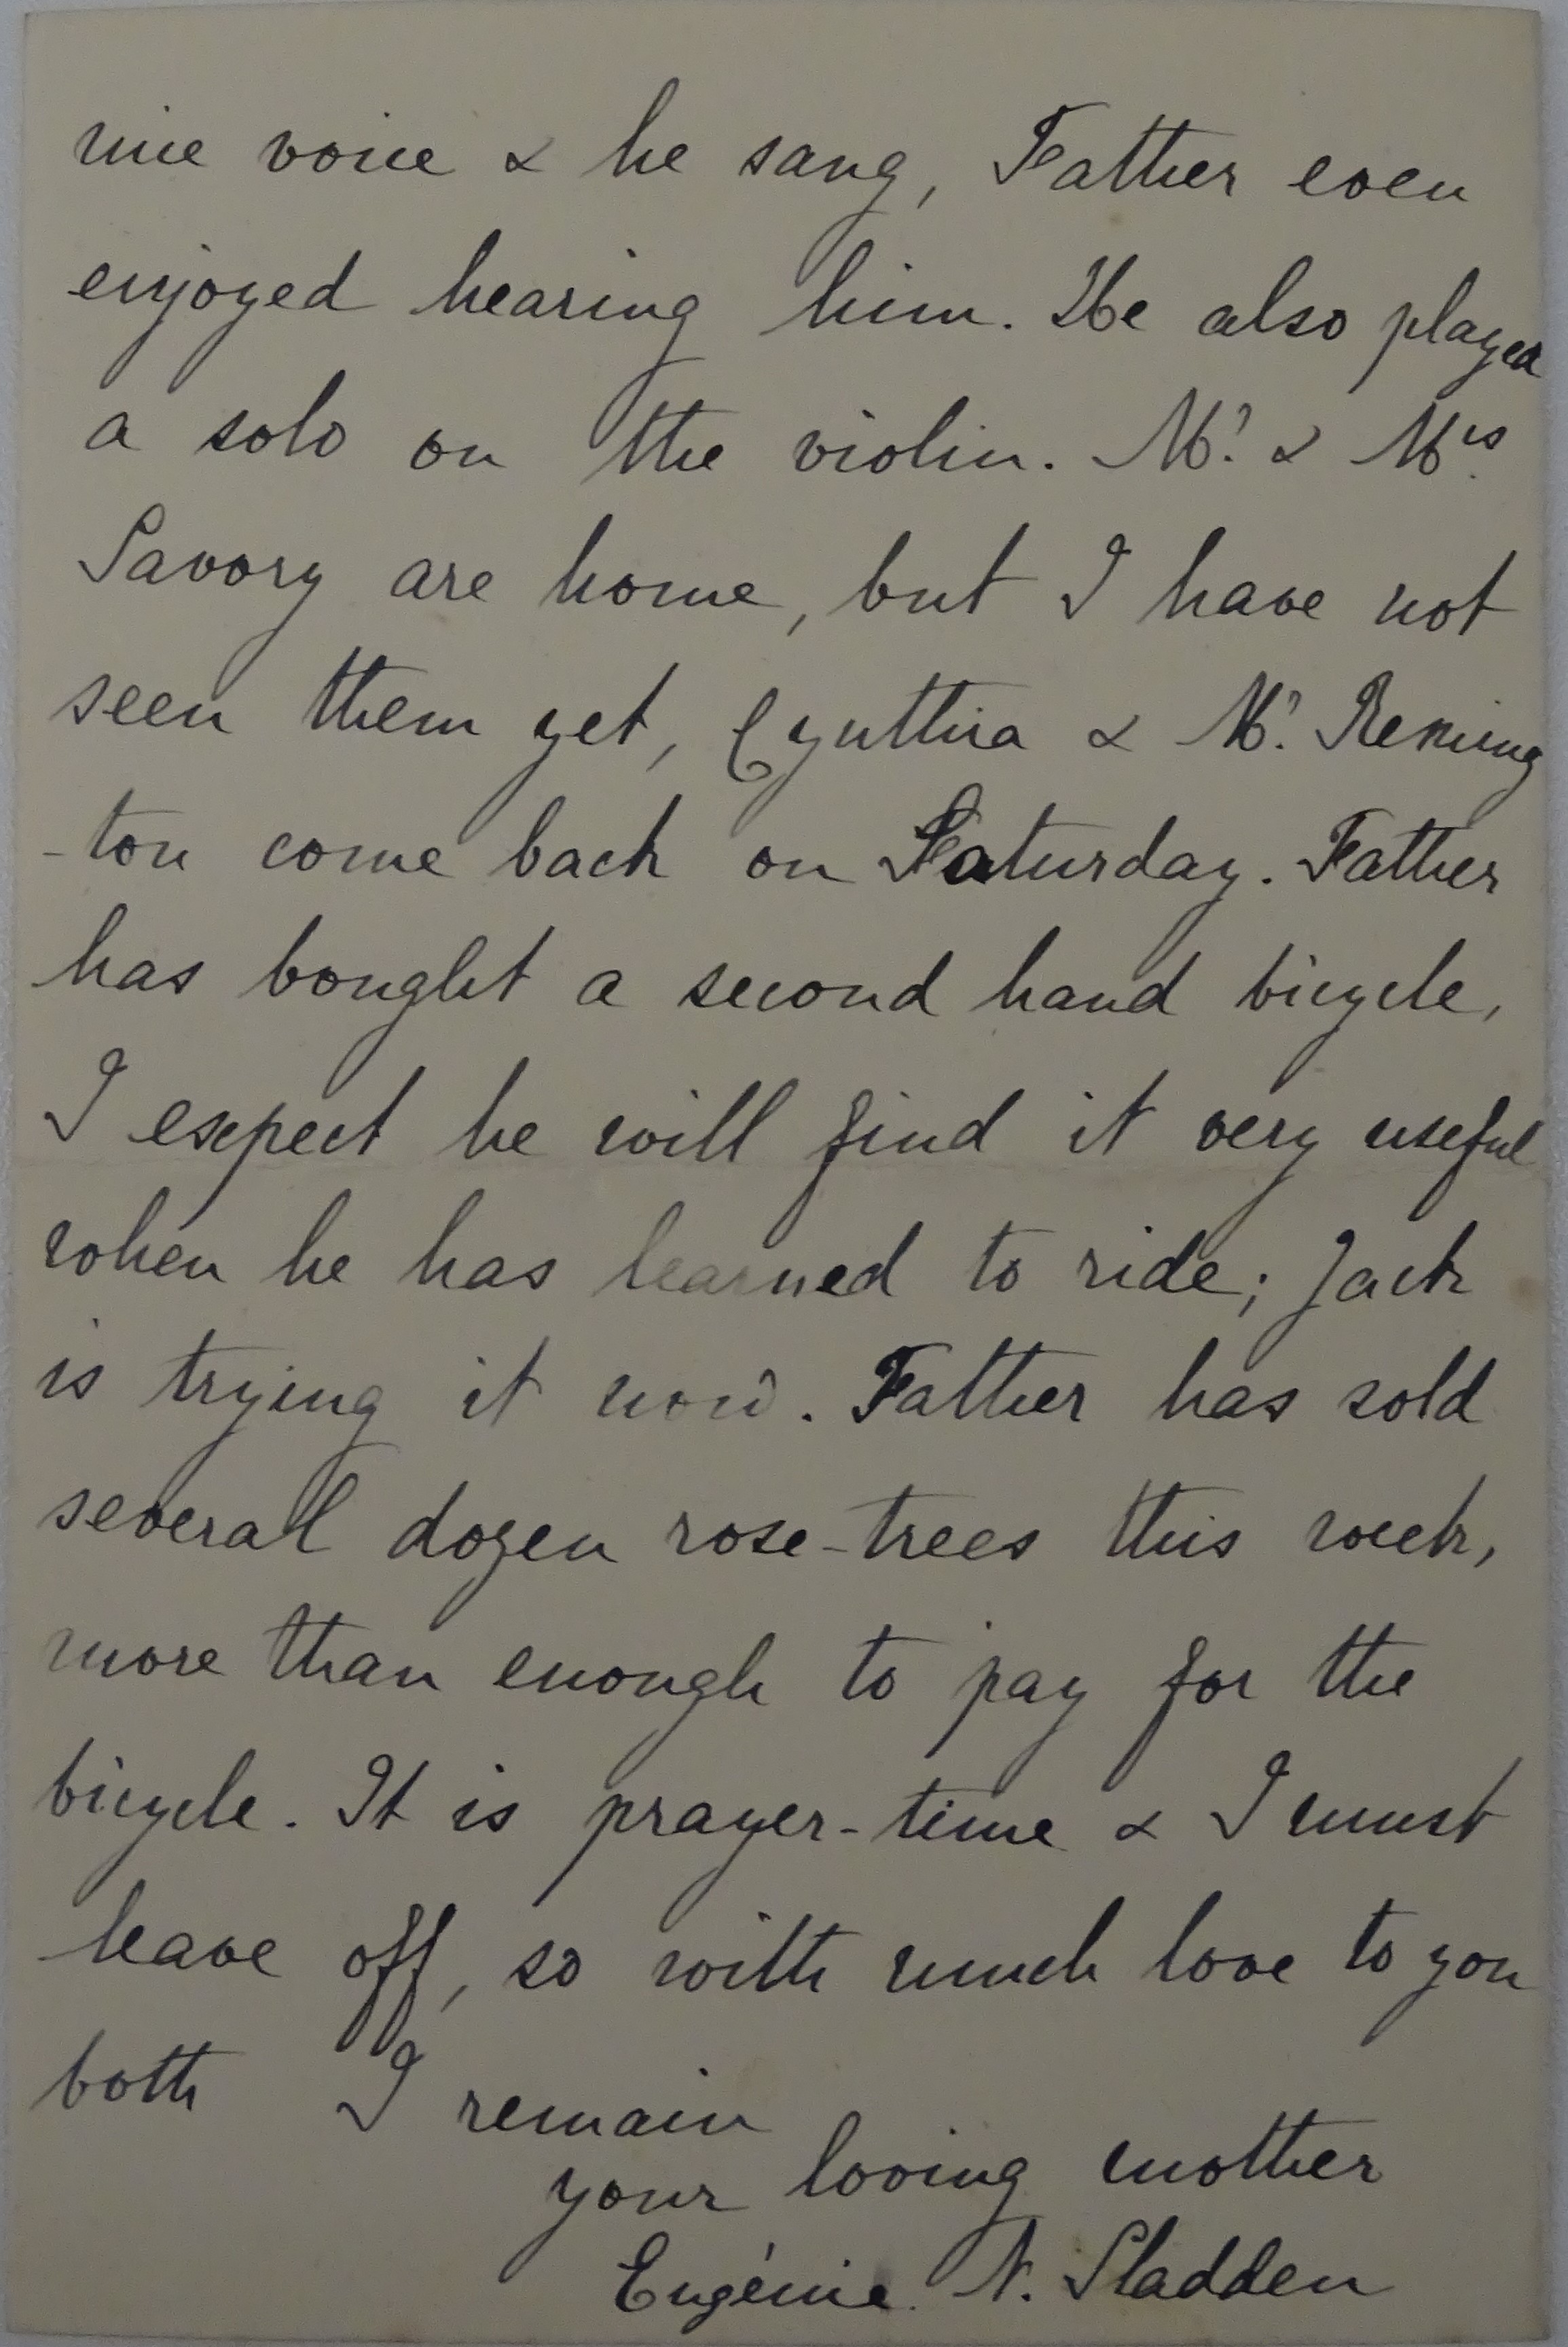 nice voice & he sang, Father even
enjoyed hearing him. He also played
a solo on the violin. Mr. & Mrs.
Savory are home, but I have not
seen them yet, Cynthia & Mr. Reming
-ton come back on Saturday. Father
has bought a second hand bicycle,
I expect he will find it very useful
when he has learned to ride; Jack
is trying it now. Father has sold
several dozen rose-trees this week,
more than enough to pay for the
bicycle. It is prayer-time & I must
leave off, so with much love to you
both I remain
your loving mother
Eugénie N. Sladden